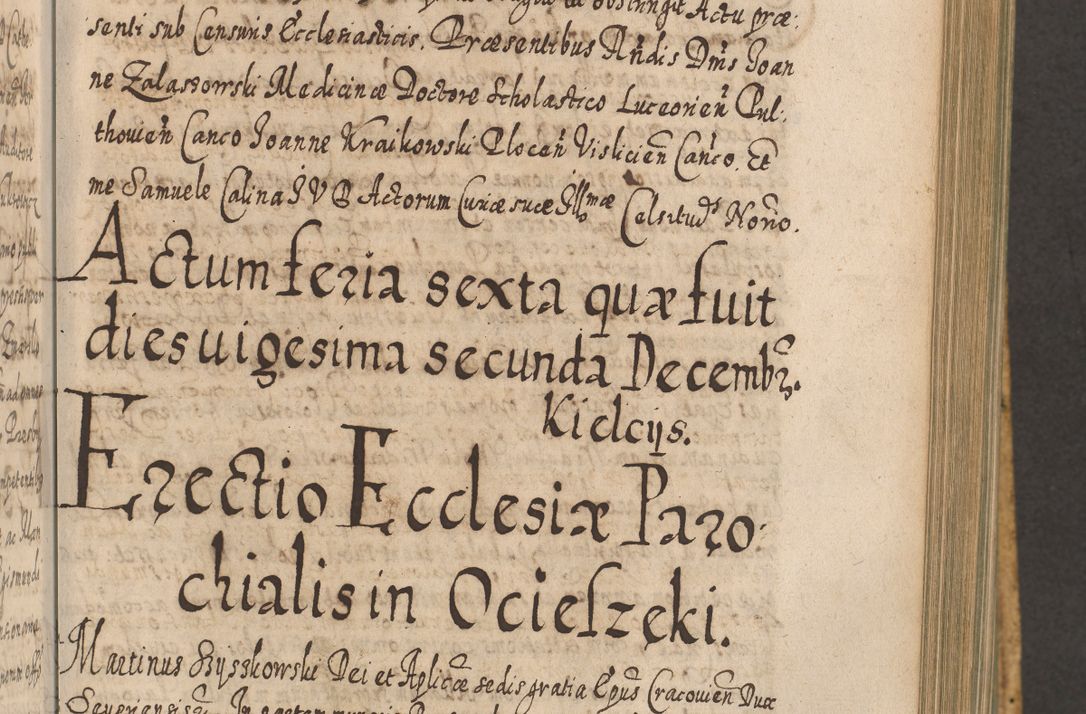 obstringit Actu præ:
senti sub Censuris Ecclesiasticis. Præsentibus Añdis Dñis Joan
ne Zalaszowski Medicinæ Doctore Scholastico Luceorień Pul:
thouień Canco Joanne Kraikowski Ploceń Vislicień Cañco. Et
me Samuele Calina J V D Actorum Curiæ suæ Illmæ Celsitud̃s Noñro.
Actum feria sexta quæ fuit
dies uigesima secunda Decembr̃.
Kielcijs.
Erectio Ecclesiæ Paro:
chialis in Ocieszeki.
Martinus Szyszkowski Dei et Aplicæ sedis gratia Ep̃us Cracouień Dux